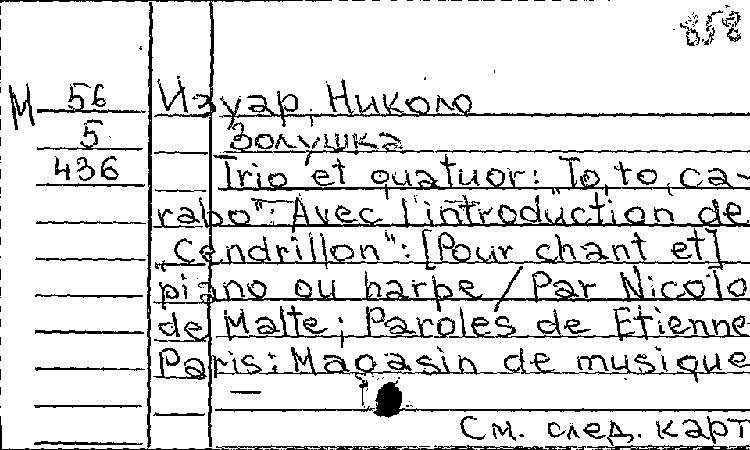 858
М 56 Изуар, Николо
5 Золушка
436 Trio et quatuor: "To, to, ca-
rabo": Avec l'introduction de
"Cendrillon": [Pour chant et]
piano ou harpe / Par Nicolo
de Malte; Paroles de Etienne
Paris: Magasin de musique
См. след. карт